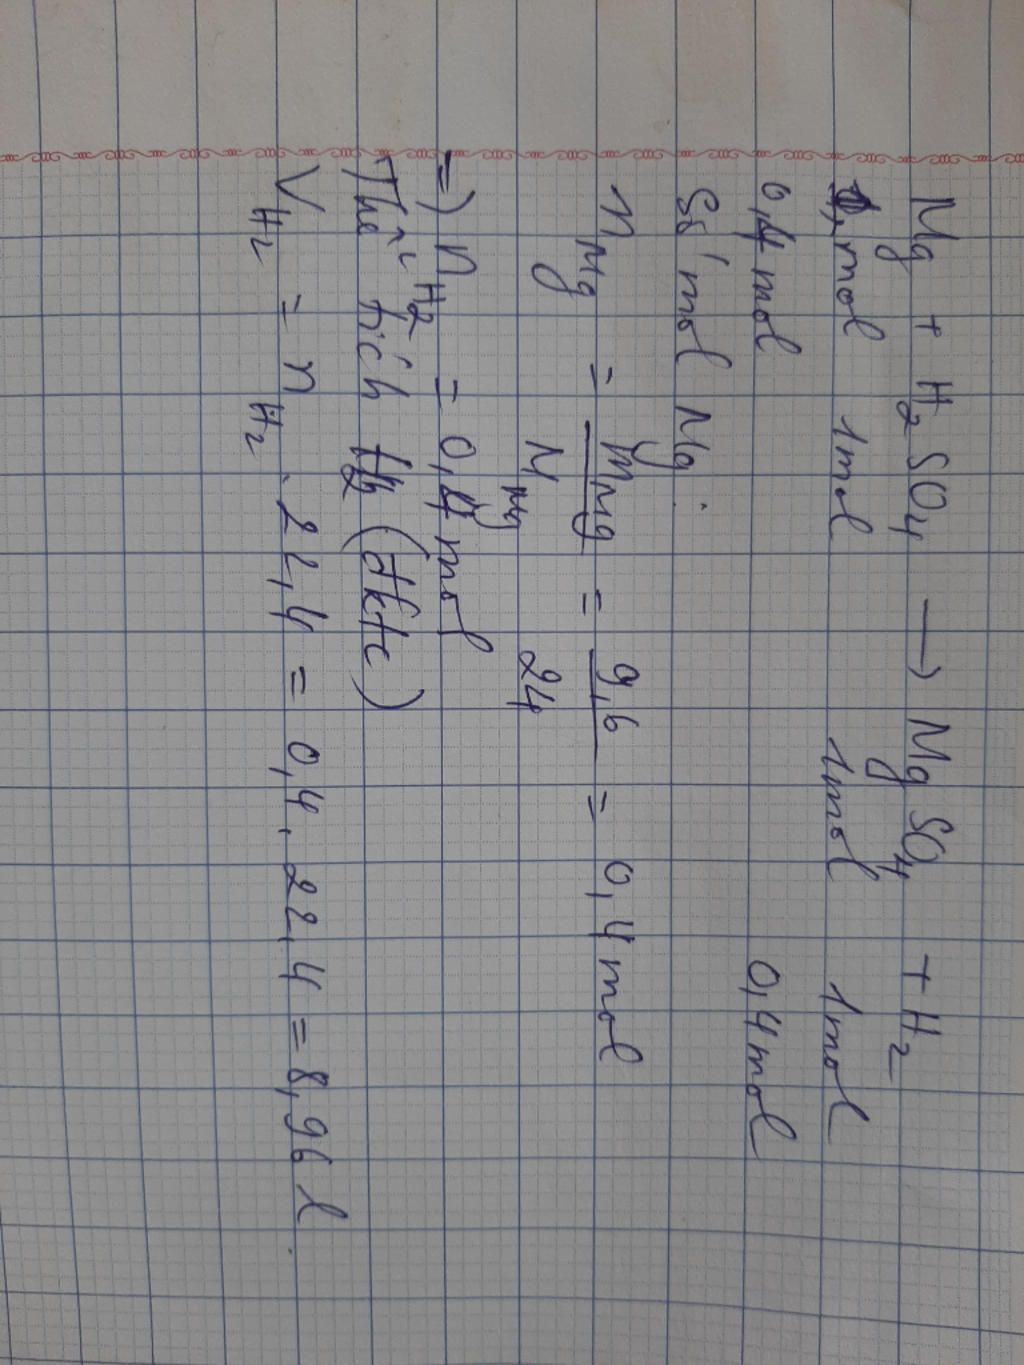 Mg + H2SO4 → MgSO4 + H2
1mol 1mol 1mol 1mol
0,4mol 0,4mol
Số mol Mg:
nMg = mMg / MMg = 9,6 / 24 = 0,4mol
=) nH2 = 0,4mol
Thể tích H2 (đktc)
VH2 = nH2 . 22,4 = 0,4. 22,4 = 8,96 l